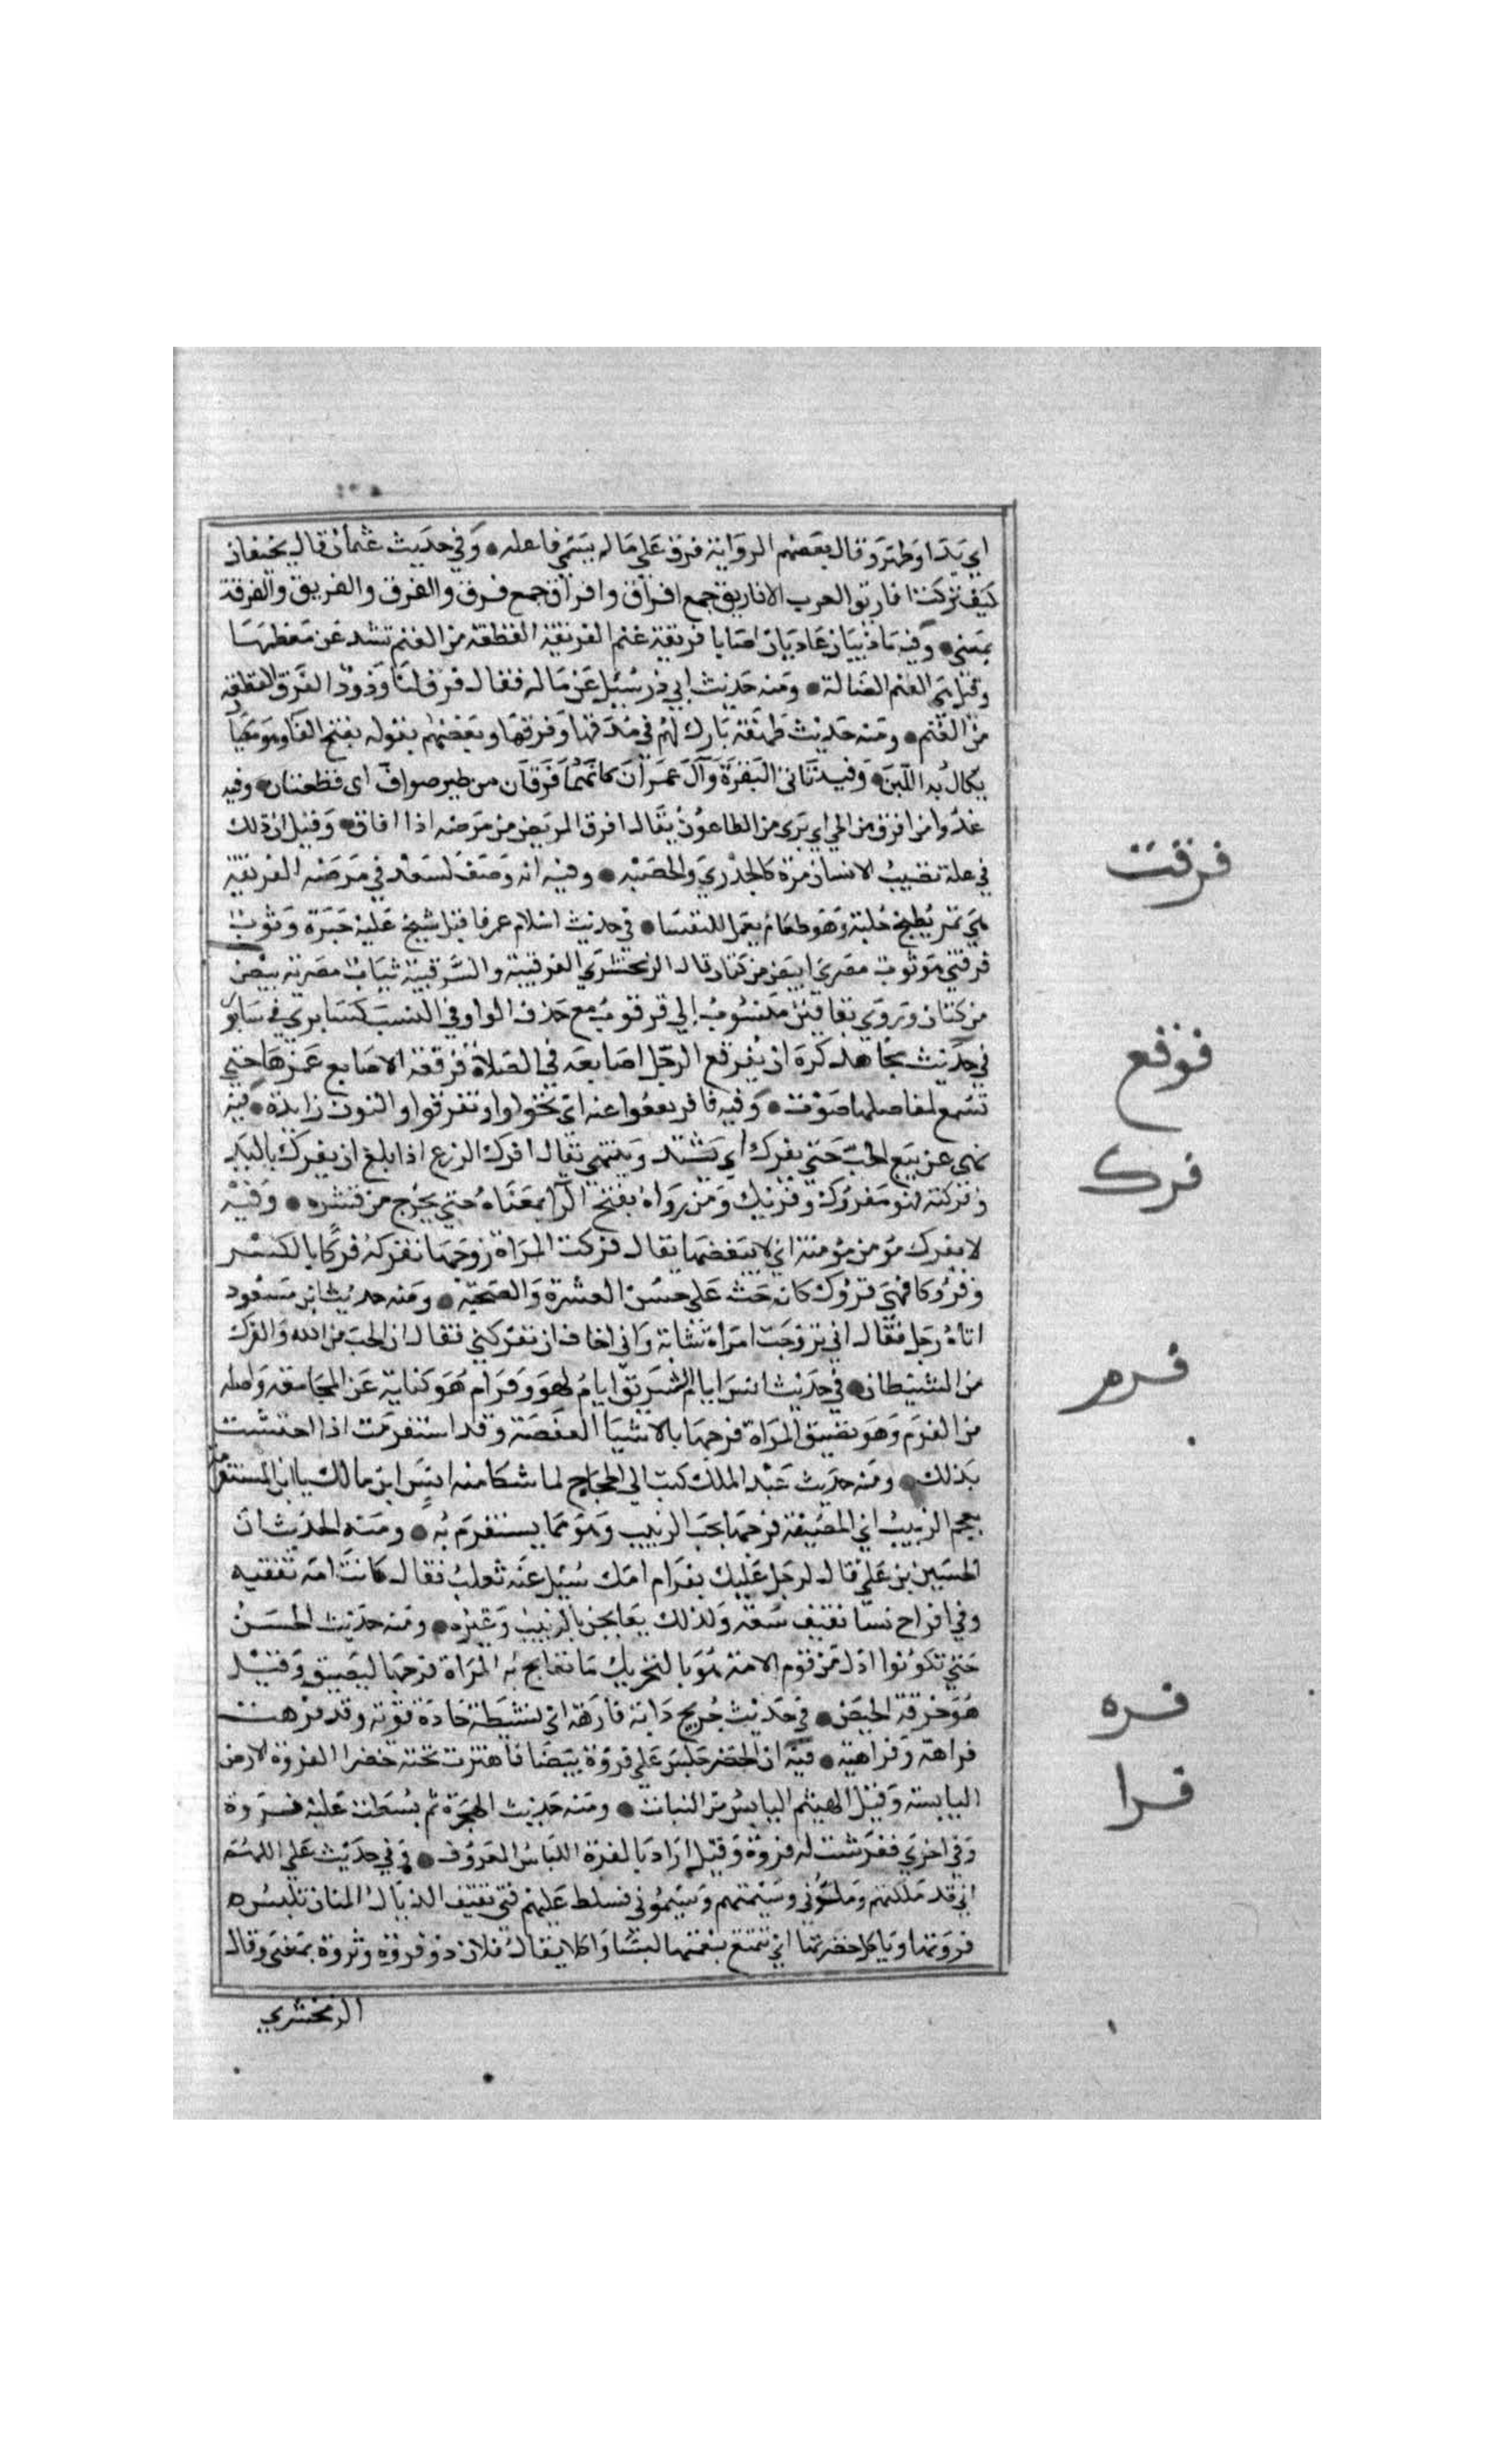 اي بدا وظهر وقال بعضهم الرواية فرق على ما لم يسم فاعله وفي حديث عثمان قال لخيفان
كيف تركت افاريق العرب الافاريق جمع افراق وافراق جمع فرق والفرق والفريق والفرقة
بمعني وفيه ماذيبان عاديان اصابا فريقة غنم الفريقة القطعة من الغنم تشد عن معظمها
وقيل هي الغنم الضالة ومنه حديث ابي ذر سئل عن ماله فقال فرق لنا وذود الفرق القطعة
من الغنم ومنه حديث طهفة بارك لهم في مذقها وفرقها وبعضهم يقوله بفتح الفا وهو مكيال
يكال به اللبن وفيه تاتي البقرة وآل عمران كانهما فرقان من طير صواف اي قطعتان وفيه
عدوا من افرق من الحي اي بري من الطاعون يقال افرق المريض من مرضه اذا افاق وقيل ان ذلك
في علة تصيب الانسان مرة كالجدري والحصبه وفيه انه وصف لسعد في مرضه الفريقة
هي تمر يطبخ بحلبة وهو طعام يعمل للنفسا في حديث اسلام عمر فاقبل شيخ عليه حبرة وثوب
فرقبي هو ثوب مصري ابيض من كتان قال الزمخشري الفرقبية والثرقبية ثياب مصرية بيض
من كتان وتروي بقافين منسوب الي قرقوب مع حذف الواو في النسب كسابري في سابور
في حديث مجاهد كره ان يفرقع الرجل اصابعه في الصلاة فرقعة الاصابع غمزها حتي
تسمع لمفاصلها صوت وفيه فافرنقعوا عنه اي تحولوا وتفرقوا والنون زايدة فيه
نهي عن بيع الحب حتي يفرك اي يشتد وينتهي يقال افرك الزرع اذا بلغ ان يفرك باليد
وفركته فهو مفروك وفريك ومن رواه بفتح الرا بمعناه حتي يخرج من قشره وفيه
لا يفرك مومن مومنة اي لا يبغضها يقال فركت المراة زوجها تفركه فركا بالكسر
وفروكا فهي فروك كانه حث على حسن العشرة والصحبة ومنه حديث ابن مسعود
اتاه رجل فقال اني تزوجت امراة شابة واني اخاف ان تفركني فقال ان الحب من الله والفرك
من الشيطان في حديث انس ايام التشريق ايام لهو وفرام هو كناية عن المجامعة واصله
من الفرم وهو تضييق المراة فرجها بالاشيا العفصة وقد استفرمت اذا احتشت
بذلك ومنه حديث عبد الملك كتب الي الحجاج لما شكا منه انس ابن مالك يا ابن المستفرمة
بعجم الزبيب اي المضيقة فرجها بحب الزبيب وهو مما يستفرم به ومنه الحديث ان
الحسين بن علي قال لرجل عليك بفرام امك سئل عنه ثعلب فقال كانت امه ثقفيه
وفي افراح نسا ثقيف سعة ولذلك يعالجن بالزبيب وغيره ومنه حديث الحسن
حتي تكونوا اذل من فرم الامة هو بالتحريك ما تعالج به المراة فرجها ليضيق وقيل
هو خرقة الحيض في حديث جريج دابة فارهة اي نشيطة حادة قوية وقد فرهت
فراهة وفراهية فيه ان الخضر جلس علي فروة بيضا فاهتزت تحته خضرا الفروة الارض
اليابسة وقيل الهشيم اليابس من النبات ومنه حديث الهجرة ثم بسطت عليه فروة
وفي اخري ففرشت له فروة وقيل اراد بالفروة اللباس المعروف وفي حديث علي اللهم
اني قد مللتهم وملوني وسئمتهم وسئموني فسلط عليهم فتي ثقيف الذيال المنان تلبس
فروتها وياكل خضرتها اي تتمتع بنعمتها لبسا واكلا يقال فلان ذو فروة وثروة بمعني وقال
الزمخشري
فرقت
فرقع
فرك
فرم
فره
فرا